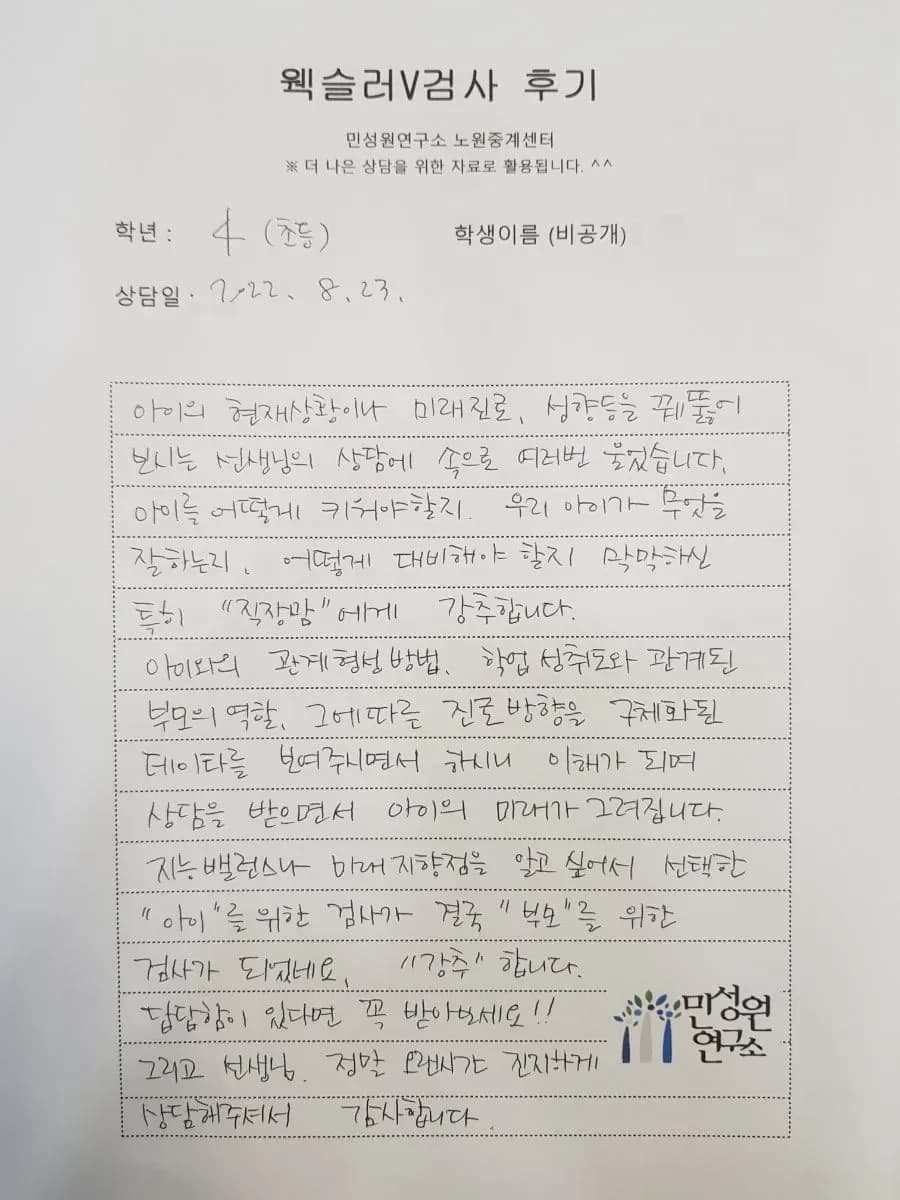 웩슬러V검사 후기
민성원연구소 노원중계센터
※ 더 나은 상담을 위한 자료로 활용됩니다. ^^
학년 : 4 (초등) 학생이름 (비공개)
상담일 · 7.22. 8.23.
아이의 현재상황이나 미래진로, 성향등을 꿰뚫어
보시는 선생님의 상담에 속으로 여러번 울었습니다.
아이를 어떻게 키워야할지. 우리 아이가 무엇을
잘하는지, 어떻게 대비해야 할지 막막하신
특히 "직장맘"에게 강추합니다.
아이와의 관계형성 방법, 학업 성취도와 관계된
부모의 역할, 그에따른 진로방향을 구체화된
데이타를 보여주시면서 하시니 이해가 되며
상담을 받으면서 아이의 미래가 그려집니다.
지능밸런스나 미래지향점을 알고 싶어서 선택한
"아이"를 위한 검사가 결국 "부모"를 위한
검사가 되었네요. "강추" 합니다.
답답함이 있다면 꼭 받아보세요!!
그리고 선생님. 정말 오랜시간 진지하게
상담해주셔서 감사합니다.
민성원
연구소